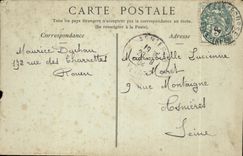 CARTE POSTALE
Tous les pays étrangers n'acceptent pas la correspondance au recto.
(Se renseigner à la Poste).
Correspondance
Adresse
Maurice
132 rue des Charrettes
Rouen
Mademoiselle Lucienne
Morel
9 rue Montaigne
Asnières
Seine